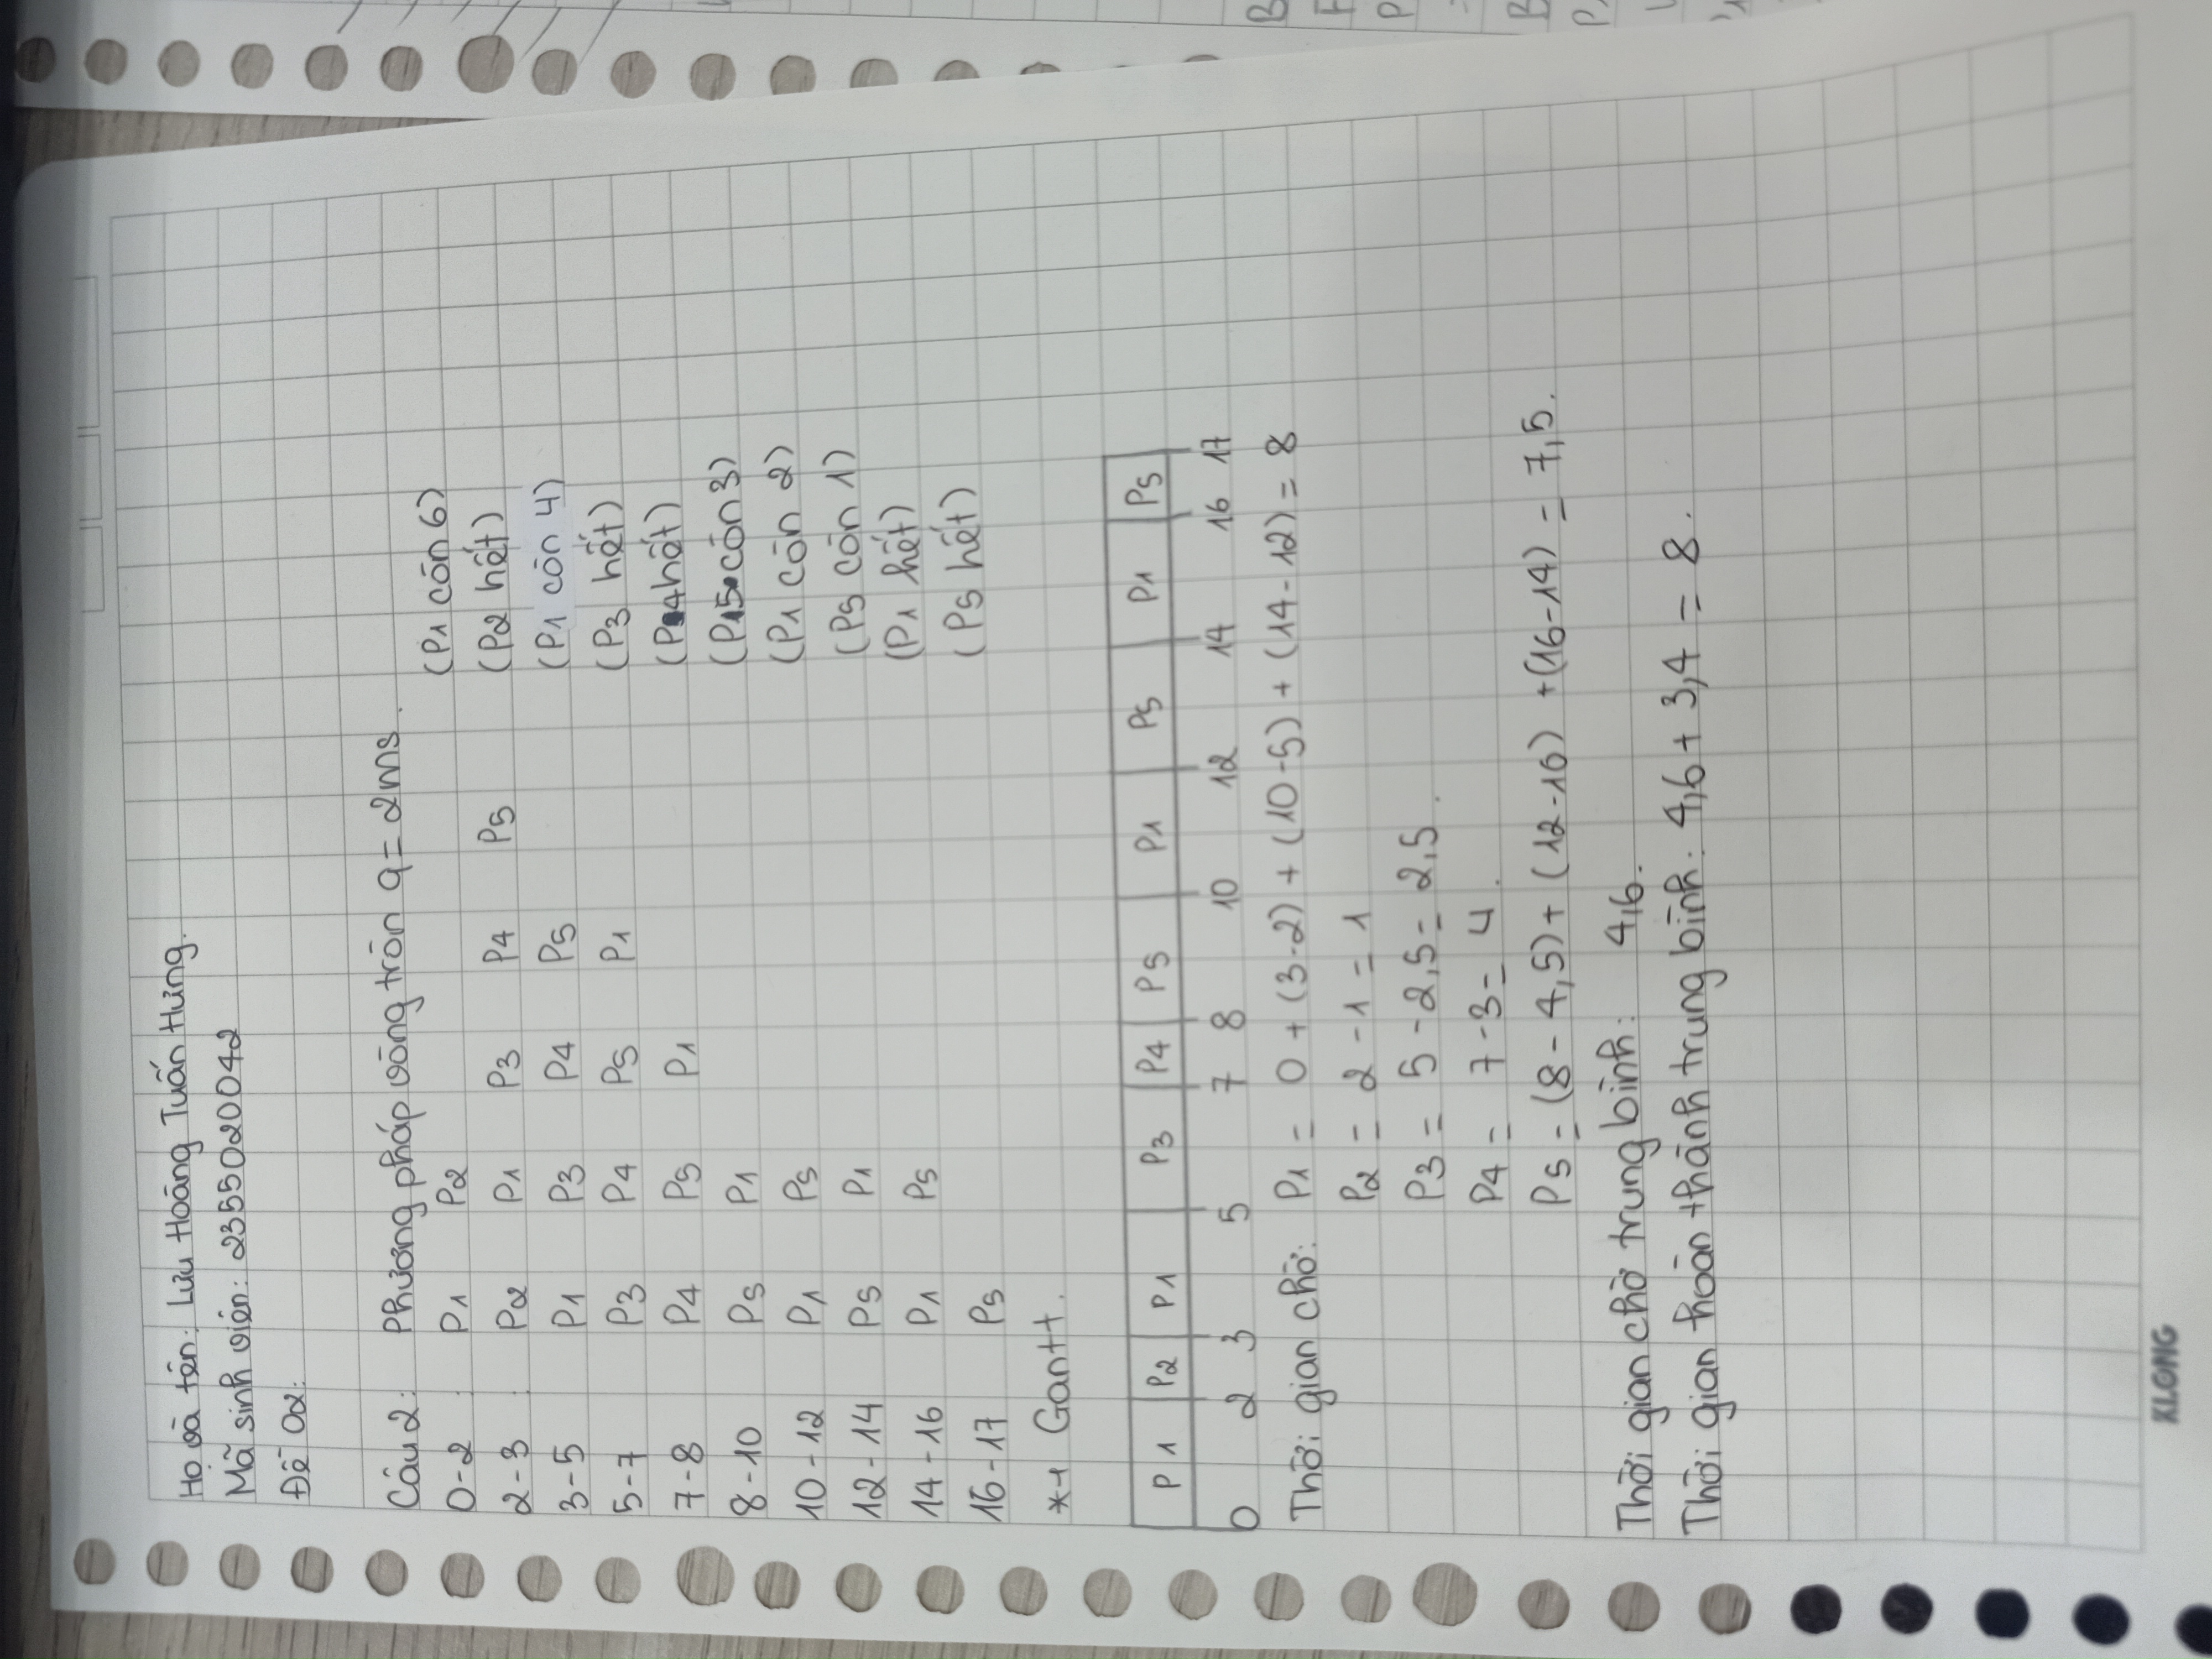 Họ và tên: Lưu Hoàng Tuấn Hưng.
Mã sinh viên: 2355020042
Đề 02:
Câu 2: Phương pháp vòng tròn q = 2ms.
0-2 P1 P2 (P1 còn 6)
2-3 P2 P1 P3 P4 P5 (P2 hết)
3-5 P1 P3 P4 P5 (P1 còn 4)
5-7 P3 P4 P5 P1 (P3 hết)
7-8 P4 P5 P1 (P4 hết)
8-10 P5 P1 (P5 còn 3)
10-12 P1 P5 (P1 còn 2)
12-14 P5 P1 (P5 còn 1)
14-16 P1 P5 (P1 hết)
16-17 P5 (P5 hết)
*+ Gantt.
P1 P2 P1 P3 P4 P5 P1 P5 P1 P5
0 2 3 5 7 8 10 12 14 16 17
Thời gian chờ: P1 = 0 + (3-2) + (10-5) + (14-12) = 8
P2 = 2 - 1 = 1
P3 = 5 - 2,5 = 2,5.
P4 = 7 - 3 = 4.
P5 = (8 - 4,5) + (12-10) + (16-14) = 7,5.
Thời gian chờ trung bình: 4,6.
Thời gian hoàn thành trung bình: 4,6 + 3,4 = 8.
KLONG